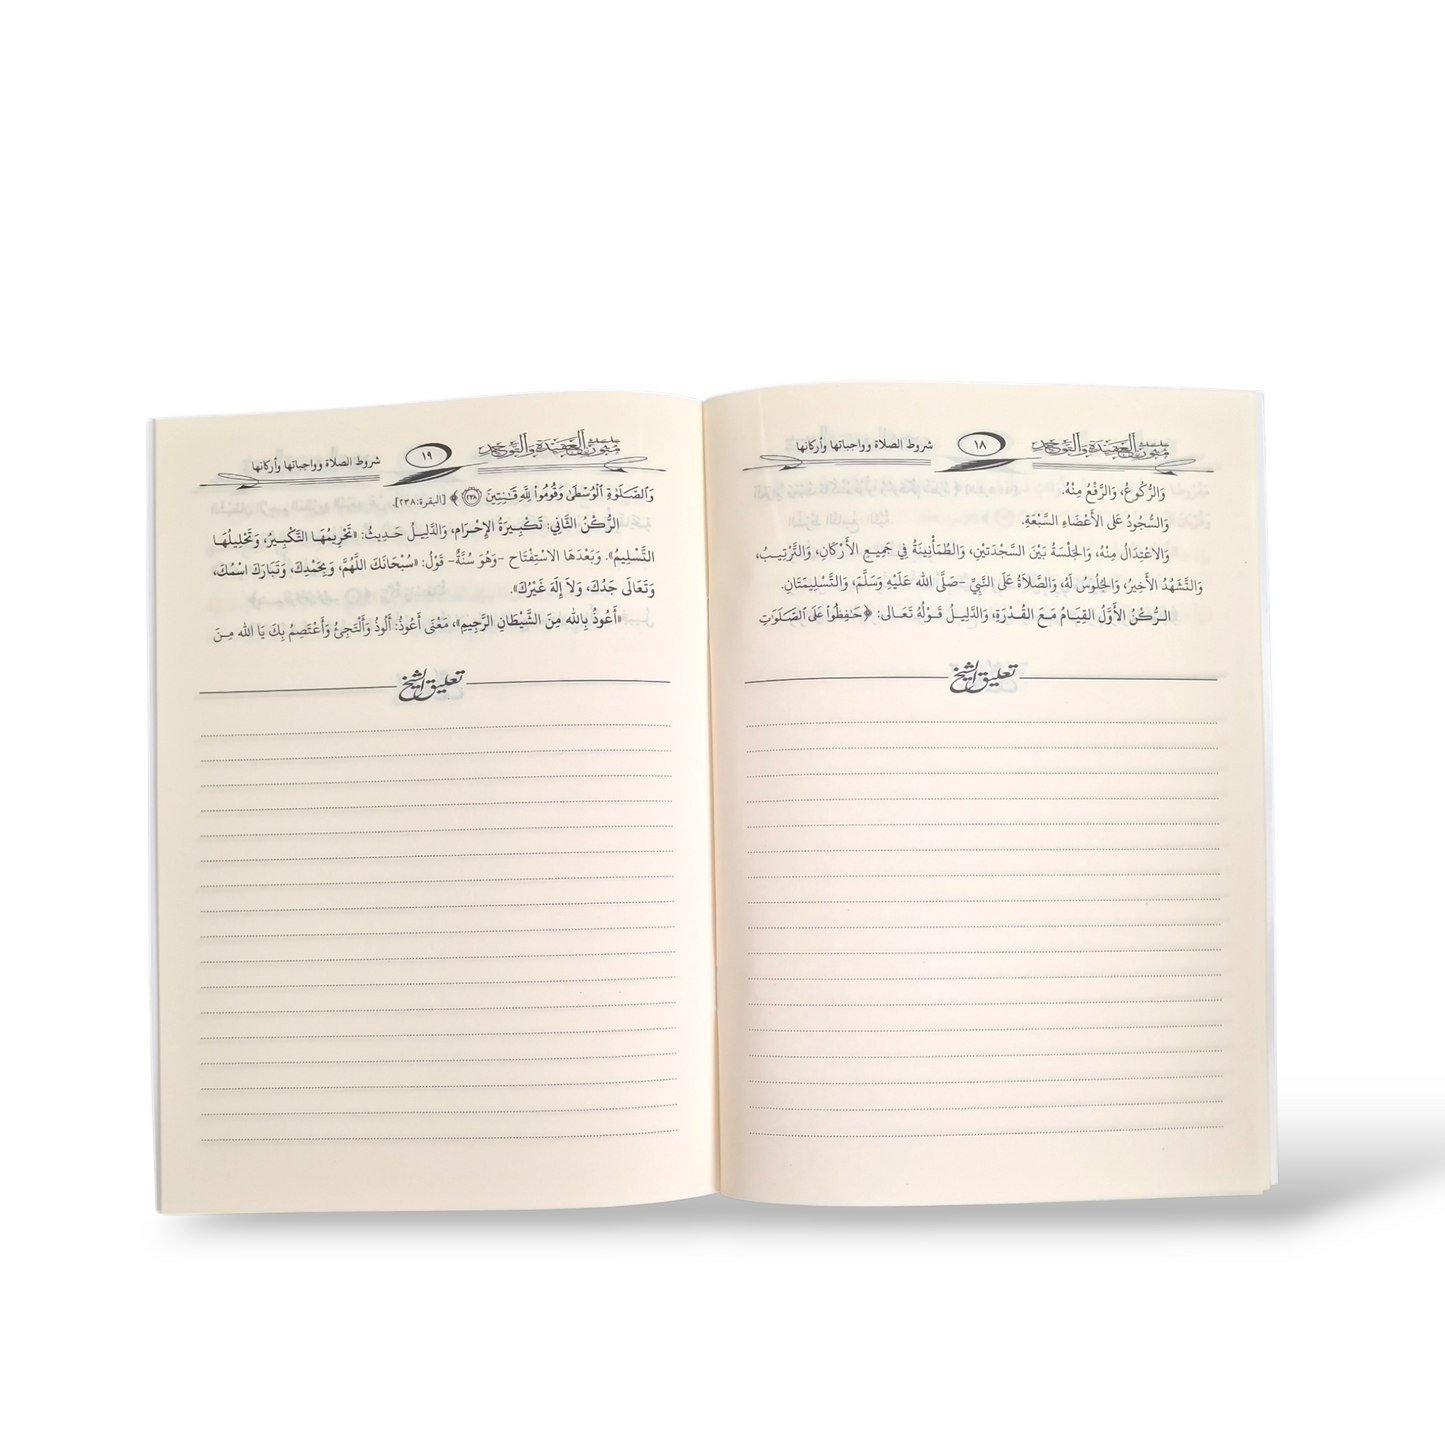 سلسلة متون العقيدة والتوحيد ١٨ شروط الصلاة وواجباتها وأركانها
وَالرُّكُوعُ، وَالرَّفْعُ مِنْهُ.
وَالسُّجُودُ عَلَى الأَعْضَاءِ السَّبْعَةِ.
وَالاعْتِدَالُ مِنْهُ، وَالجَلْسَةُ بَيْنَ السَّجْدَتَيْنِ، وَالطُّمَأْنِينَةُ فِي جَمِيعِ الأَرْكَانِ، وَالتَّرْتِيبُ،
وَالتَّشَهُّدُ الأَخِيرُ، وَالجُلُوسُ لَهُ، وَالصَّلاَةُ عَلَى النَّبِيِّ -صَلَّى الله عَلَيْهِ وَسَلَّمَ، وَالتَّسْلِيمَتَانِ.
الرُّكْنُ الأَوَّلُ القِيَامُ مَعَ القُدْرَةِ، وَالدَّلِيلُ قَوْلُهُ تَعَالَى: ﴿حَـٰفِظُوا۟ عَلَى ٱلصَّلَوَٰتِ
تعليق الشيخ
سلسلة متون العقيدة والتوحيد ١٩ شروط الصلاة وواجباتها وأركانها
وَٱلصَّلَوٰةِ ٱلْوُسْطَىٰ وَقُومُوا۟ لِلَّهِ قَـٰنِتِينَ ٢٣٨﴾ [البقرة:٢٣٨].
الرُّكْنُ الثَّانِي: تَكْبِيرَةُ الإِحْرَامِ، وَالدَّلِيلُ حَدِيثُ: «تَحْرِيمُهَا التَّكْبِيرُ، وَتَحْلِيلُهَا
التَّسْلِيمُ». وَبَعْدَهَا الاسْتِفْتَاح -وَهُوَ سُنَّةٌ- قَوْلُ: «سُبْحَانَكَ اللَّهُمَّ، وَبِحَمْدِكَ، وَتَبَارَكَ اسْمُكَ،
وَتَعَالَى جَدُكَ، وَلاَ إِلَهَ غَيْرُكَ».
«أَعُوذُ بِالله مِنَ الشَّيْطَانِ الرَّجِيمِ»، مَعْنَى أَعُوذُ: أَلُوذُ وَأَلْتَجِئُ وَأَعْتَصِمُ بِكَ يَا الله مِنَ
تعليق الشيخ